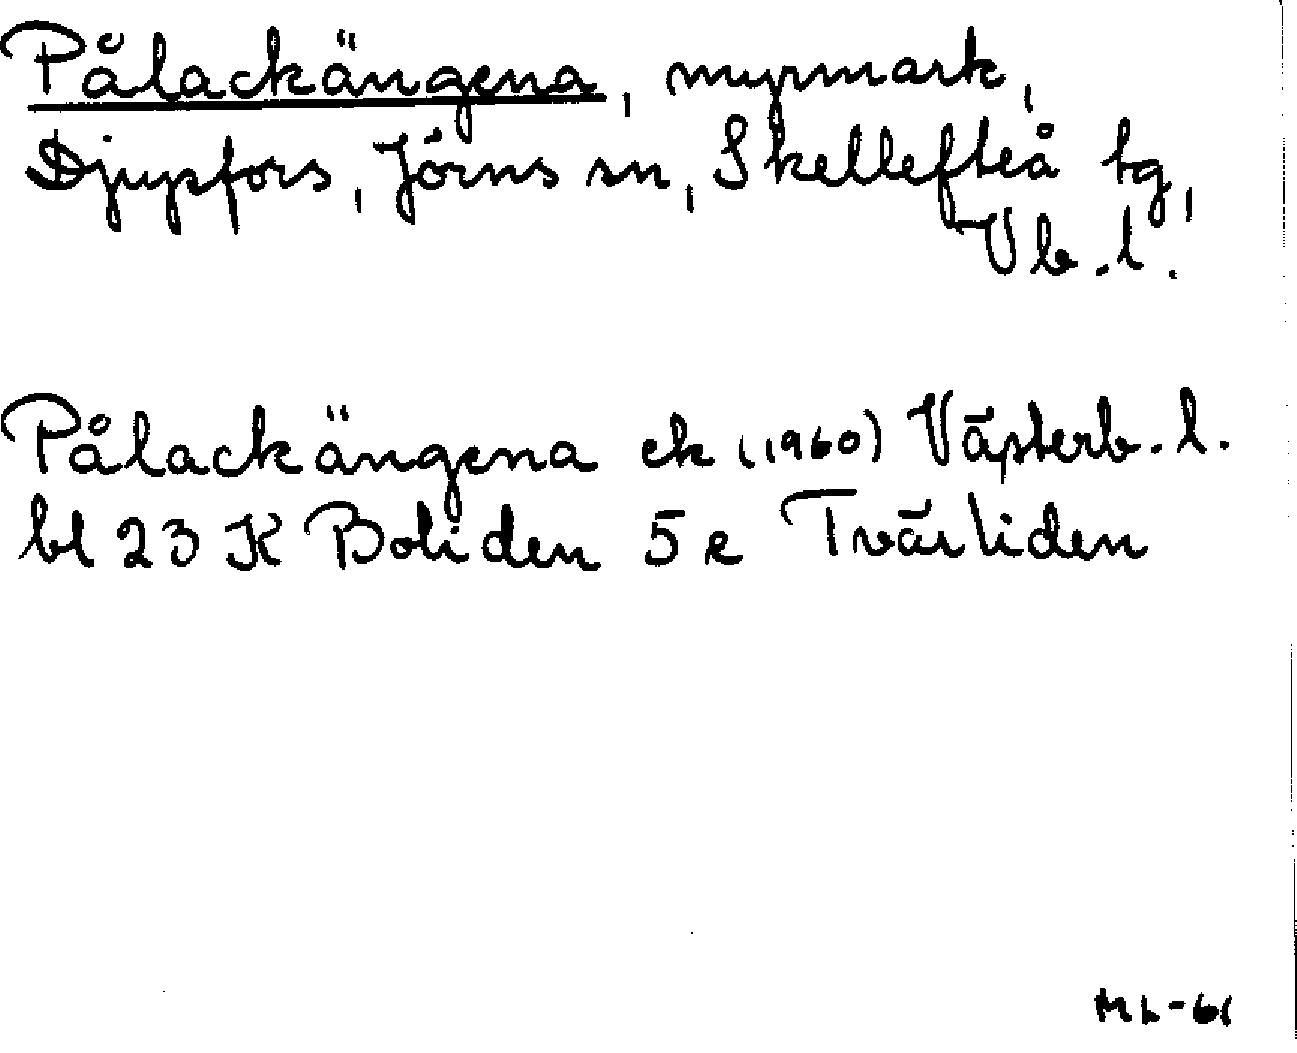 Pålackängena, myrmark,
Djupfors, Jörns sn, Skellefteå tg,
Vb.l.
Pålackängena ek (1960) Västerb.l.
bl 23 K Boliden 5 e Tvärliden
ML-61